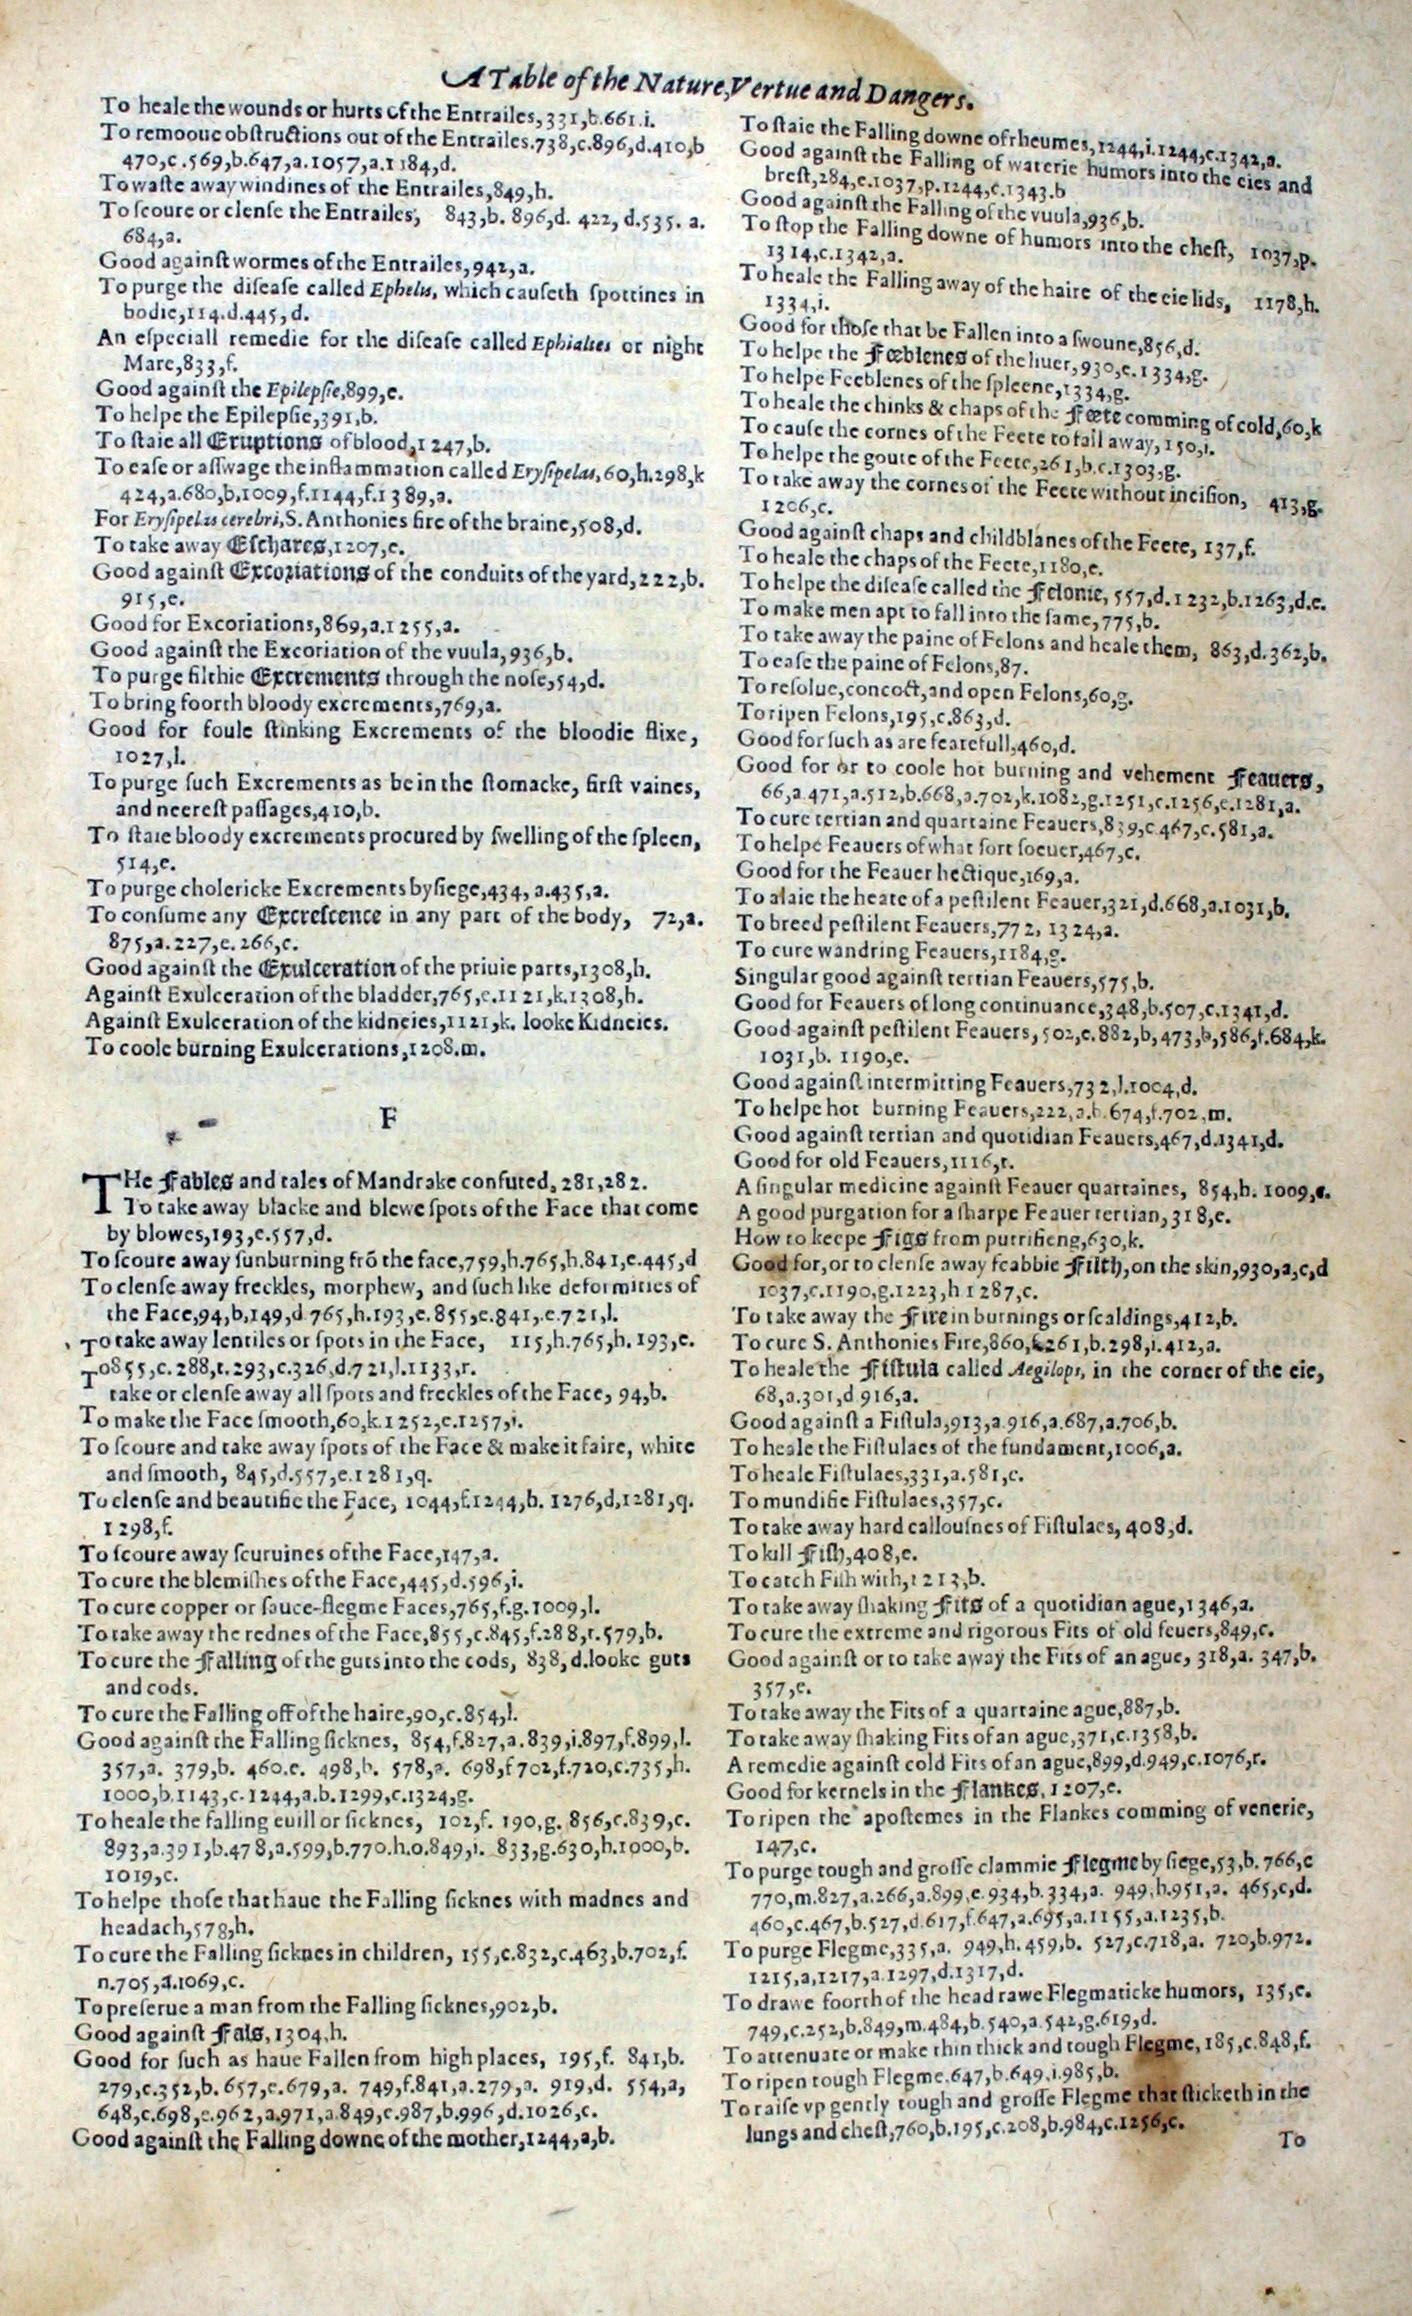 A Table of the Nature, Vertue and Dangers.
To heale the wounds or hurts of the Entrailes, 331,b.661.i.
To remooue obſtructions out of the Entrailes.738,c.896,d.410,b
470,c.569,b.647,a.1057,a.1184,d.
To waſte away windines of the Entrailes,849,h.
To ſcoure or clenſe the Entrailes, 843,b. 896,d. 422, d.535. a.
684,a.
Good againſt wormes of the Entrailes,942,a.
To purge the diſeaſe called Ephelus, which cauſeth ſpottines in
bodie,114.d.445,d.
An eſpeciall remedie for the diſeaſe called Ephialtes or night
Mare,833,f.
Good againſt the Epilepſie,899,e.
To helpe the Epilepſie,391,b.
To ſtaie all Eruptions of blood,1247,b.
To eaſe or aſſwage the inflammation called Eryſipelas,60,h.298,k
424,a.680,b,1009,f.1144,f.1389,a.
For Eryſipelas cerebri,S.Anthonies fire of the braine,508,d.
To take away Eſchares,1207,e.
Good againſt Excoriations of the conduits of the yard,222,b.
915,e.
Good for Excoriations,869,a.1255,a.
Good againſt the Excoriation of the vuula,936,b.
To purge filthie Excrements through the noſe,54,d.
To bring foorth bloody excrements,769,a.
Good for foule ſtinking Excrements of the bloodie flixe,
1027,l.
To purge ſuch Excrements as be in the ſtomacke, firſt vaines,
and neereſt paſſages,410,b.
To ſtaie bloody excrements procured by ſwelling of the ſpleen,
514,e.
To purge cholericke Excrements by ſiege,434, a.435,a.
To conſume any Excreſcence in any part of the body, 72,a.
875,a.227,e.266,c.
Good againſt the Exulceration of the priuie parts,1308,h.
Againſt Exulceration of the bladder,765,e.1121,k.1308,h.
Againſt Exulceration of the kidneies,1121,k. looke Kidneies.
To coole burning Exulcerations,1208.m.
F
THe Fables and tales of Mandrake confuted, 281,282.
To take away blacke and blewe ſpots of the Face that come
by blowes,193,e.557,d.
To ſcoure away ſunburning frõ the face,759,h.765,h.841,e.445,d
To clenſe away freckles, morphew, and ſuch like deformities of
the Face,94,b,149,d 765,h.193,e.855,e.841,.e.721,l.
To take away lentiles or ſpots in the Face, 115,h.765,h. 193,e.
To855,c.288,t.293,c.326,d.721,l.1133,r.
take or clenſe away all ſpots and freckles of the Face, 94,b.
To make the Face ſmooth,60,k.1252,c.1257,i.
To ſcoure and take away ſpots of the Face & make it faire, white
and ſmooth, 845,d.557,e.1281,q.
To clenſe and beautifie the Face, 1044,f.1244,b. 1276,d,1281,q.
1298,f.
To ſcoure away ſcuruines of the Face,147,a.
To cure the blemiſhes of the Face,445,d.596,i.
To cure copper or ſauce-flegme Faces,765,f.g.1009,l.
To take away the rednes of the Face,855,c.845,f.288,r.579,b.
To cure the Falling of the guts into the cods, 838,d.looke guts
and cods.
To cure the Falling off of the haire,90,c.854,l.
Good againſt the Falling ſicknes, 854,f.827,a.839,i.897,f.899,l.
357,a. 379,b. 460.e. 498,b. 578,a. 698,f 702,f.720,c.735,h.
1000,b.1143,c.1244,a.b.1299,c.1324,g.
To heale the falling euill or ſicknes, 102,f. 190,g. 856,c.839,c.
893,a.391,b.478,a.599,b.770.h.o.849,i. 833,g.630,h.1000,b.
1019,c.
To helpe thoſe that haue the Falling ſicknes with madnes and
headach,578,h.
To cure the Falling ſicknes in children, 155,c.832,c.463,b.702,f.
n.705,a.1069,c.
To preſerue a man from the Falling ſicknes,902,b.
Good againſt Fals,1304,h.
Good for ſuch as haue Fallen from high places, 195,f. 841,b.
279,c.352,b. 657,e.679,a. 749,f.841,a.279,a. 919,d. 554,a,
648,c.698,e.962,a.971,a.849,c.987,b.996,d.1026,c.
Good againſt the Falling downe of the mother,1244,a,b.
To ſtaie the Falling downe of rheumes,1244,i.1244,c.1342,a.
Good againſt the Falling of waterie humors into the eies and
breſt,284,e.1037,p.1244,c.1343.b
Good againſt the Falling of the vuula,936,b.
To ſtop the Falling downe of humors into the cheſt, 1037,p.
1314,c.1342,a.
To heale the Falling away of the haire of the eie lids, 1178,h.
1334,i.
Good for thoſe that be Fallen into a ſwoune,856,d.
To helpe the Fœblenes of the liuer,930,e.1334,g.
To helpe Feeblenes of the ſpleene,1334,g.
To heale the chinks & chaps of the Fœte comming of cold,60,k
To cauſe the cornes of the Feete to fall away,150,i.
To helpe the goute of the Feete,261,b.c.1303,g.
To take away the cornes of the Feete without inciſion, 413,g.
1206,c.
Good againſt chaps and childblanes of the Feete, 137,f.
To heale the chaps of the Feete,1180,e.
To helpe the diſeaſe called the Felonie, 557,d.1232,b.1263,d.e.
To make men apt to fall into the ſame,775,b.
To take away the paine of Felons and heale them, 863,d.362,b.
To eaſe the paine of Felons,87.
To reſolue,concoct,and open Felons,60,g.
To ripen Felons,195,c.863,d.
Good for ſuch as are fearefull,460,d.
Good for or to coole hot burning and vehement Feauers,
66,a 471,a.512,b.668,a.702,k.1082,g.1251,c.1256,e.1281,a.
To cure tertian and quartaine Feauers,839,c 467,c.581,a.
To helpe Feauers of what ſort ſoeuer,467,c.
Good for the Feauer hectique,169,a.
To alaie the heate of a peſtilent Feauer,321,d.668,a.1031,b.
To breed peſtilent Feauers,772, 1324,a.
To cure wandring Feauers,1184,g.
Singular good againſt tertian Feauers,575,b.
Good for Feauers of long continuance,348,b.507,c.1341,d.
Good againſt peſtilent Feauers, 502,c.882,b,473,b,586,f.684,k.
1031,b. 1190,e.
Good againſt intermitting Feauers,732,l.1004,d.
To helpe hot burning Feauers,222,a.b.674,f.702,m.
Good againſt tertian and quotidian Feauers,467,d.1341,d.
Good for old Feauers,1116,r.
A ſingular medicine againſt Feauer quartaines, 854,h. 1009,e.
A good purgation for a ſharpe Feauer tertian,318,e.
How to keepe Figs from putrifieng,630,k.
Good for,or to clenſe away ſcabbie Filth,on the skin,930,a,c,d
1037,c.1190,g.1223,h 1287,c.
To take away the Fire in burnings or ſcaldings,412,b.
To cure S. Anthonies Fire,860,k261,b.298,i.412,a.
To heale the Fiſtula called Aegilops, in the corner of the eie,
68,a.301,d 916,a.
Good againſt a Fiſtula,913,a 916,a.687,a.706,b.
To heale the Fiſtulaes of the fundament,1006,a.
To heale Fiſtulaes,331,a.581,c.
To mundifie Fiſtulaes,357,c.
To take away hard callouſnes of Fiſtulaes, 408,d.
To kill Fiſh,408,e.
To catch Fiſh with,1213,b.
To take away ſhaking Fits of a quotidian ague,1346,a.
To cure the extreme and rigorous Fits of old feuers,849,c.
Good againſt or to take away the Fits of an ague, 318,a. 347,b.
357,e.
To take away the Fits of a quartaine ague,887,b.
To take away ſhaking Fits of an ague,371,c.1358,b.
A remedie againſt cold Fits of an ague,899,d.949,c.1076,r.
Good for kernels in the Flankes, 1207,e.
To ripen the apoſtemes in the Flankes comming of venerie,
147,c.
To purge tough and groſſe clammie Flegme by ſiege,53,b. 766,c
770,m.827,a.266,a.899,e.934,b.334,a. 949,h.951,a. 465,c,d.
460,c.467,b.527,d.617,f.647,a.695,a.1155,a.1235,b.
To purge Flegme,335,a. 949,h.459,b. 527,c.718,a. 720,b.972.
1215,a,1217,a.1297,d.1317,d.
To drawe foorth of the head rawe Flegmaticke humors, 135,e.
749,c.252,b.849,m.484,b.540,a.542,g.619,d.
To attenuate or make thin thick and tough Flegme,185,c.848,f.
To ripen tough Flegme.647,b.649,i.985,b.
To raiſe vp gently tough and groſſe Flegme that ſticketh in the
lungs and cheſt,760,b.195,c.208,b.984,c.1256,c.
To